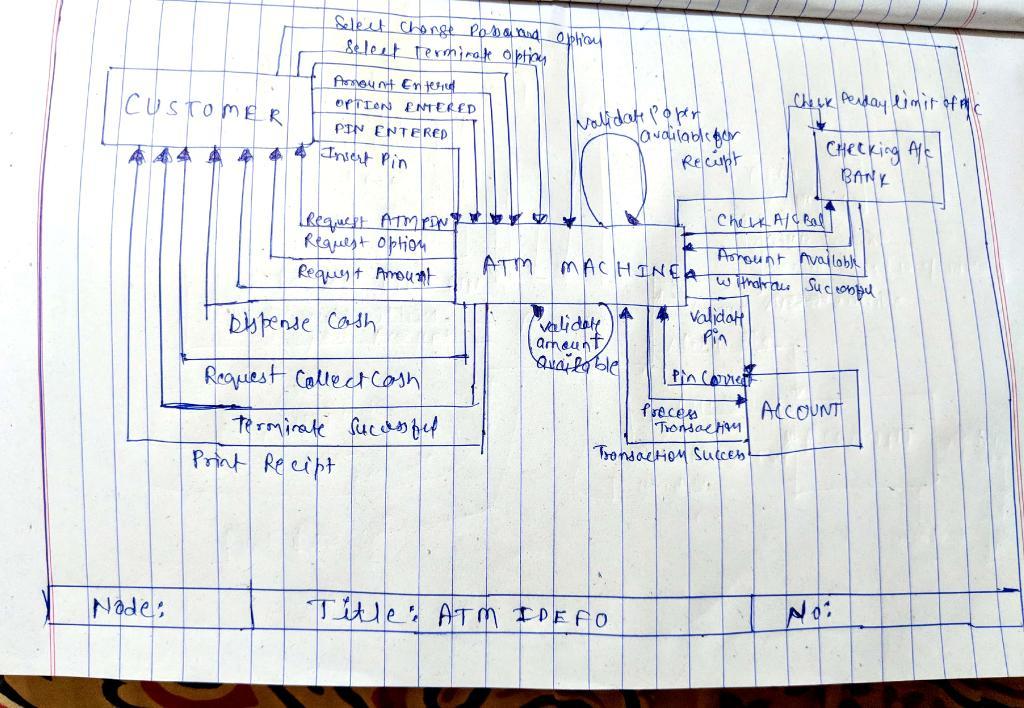 Select Change Password Option
Select Terminate Option
Amount Entered
OPTION ENTERED
PIN ENTERED
Insert Pin
CUSTOMER
Validate Paper
available for
Recipt
Check Perday limit of A/c
CHecking A/c
BANK
Request ATM PIN
Request Option
Request Amount
ATM MACHINE
Check A/c Bal
Amount Available
Withdraw Sucessful
Dispense Cash
Validate
amount
available
Validate
Pin
Request Collect Cash
Pin Correct
Process
Transaction
ACCOUNT
Terminate Sucessful
Transaction Success
Print Recipt
Node:
Title: ATM IDEFO
No: